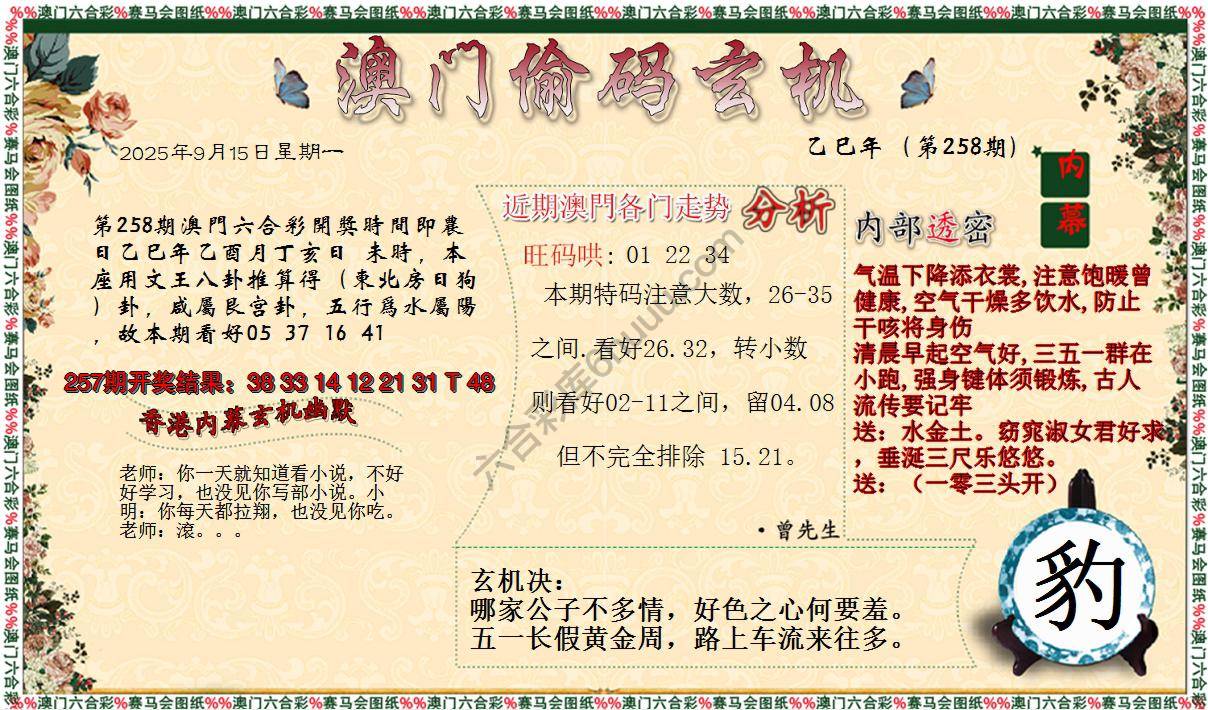 %%澳门六合彩%赛马会图纸%%澳门六合彩%赛马会图纸%%澳门六合彩%赛马会图纸
澳门偷码玄机
2025年9月15日星期一
乙巳年（第258期）
内幕
第258期澳門六合彩開獎時間即農
日乙巳年乙酉月丁亥日 未時，本
座用文王八卦推算得（東北房日狗
）卦，咸屬艮宫卦，五行爲水屬陽
，故本期看好05 37 16 41
257期开奖结果：38 33 14 12 21 31 T 48
香港内幕玄机幽默
老师：你一天就知道看小说，不好
好学习，也没见你写部小说。小
明：你每天都拉翔，也没见你吃。
老师：滚。。。
近期澳門各门走势 分析
旺码哄: 01 22 34
本期特码注意大数，26-35
之间.看好26.32，转小数
则看好02-11之间，留04.08
但不完全排除 15.21。
·曾先生
内部透密
气温下降添衣裳,注意饱暖曾
健康,空气干燥多饮水,防止
干咳将身伤
清晨早起空气好,三五一群在
小跑,强身键体须锻炼,古人
流传要记牢
送：水金土。窈窕淑女君好求
，垂涎三尺乐悠悠。
送：（一零三头开）
玄机决：
哪家公子不多情，好色之心何要羞。
五一长假黄金周，路上车流来往多。
豹
%%澳门六合彩%赛马会图纸%%澳门六合彩%赛马会图纸%%澳门六合彩%赛马会图纸